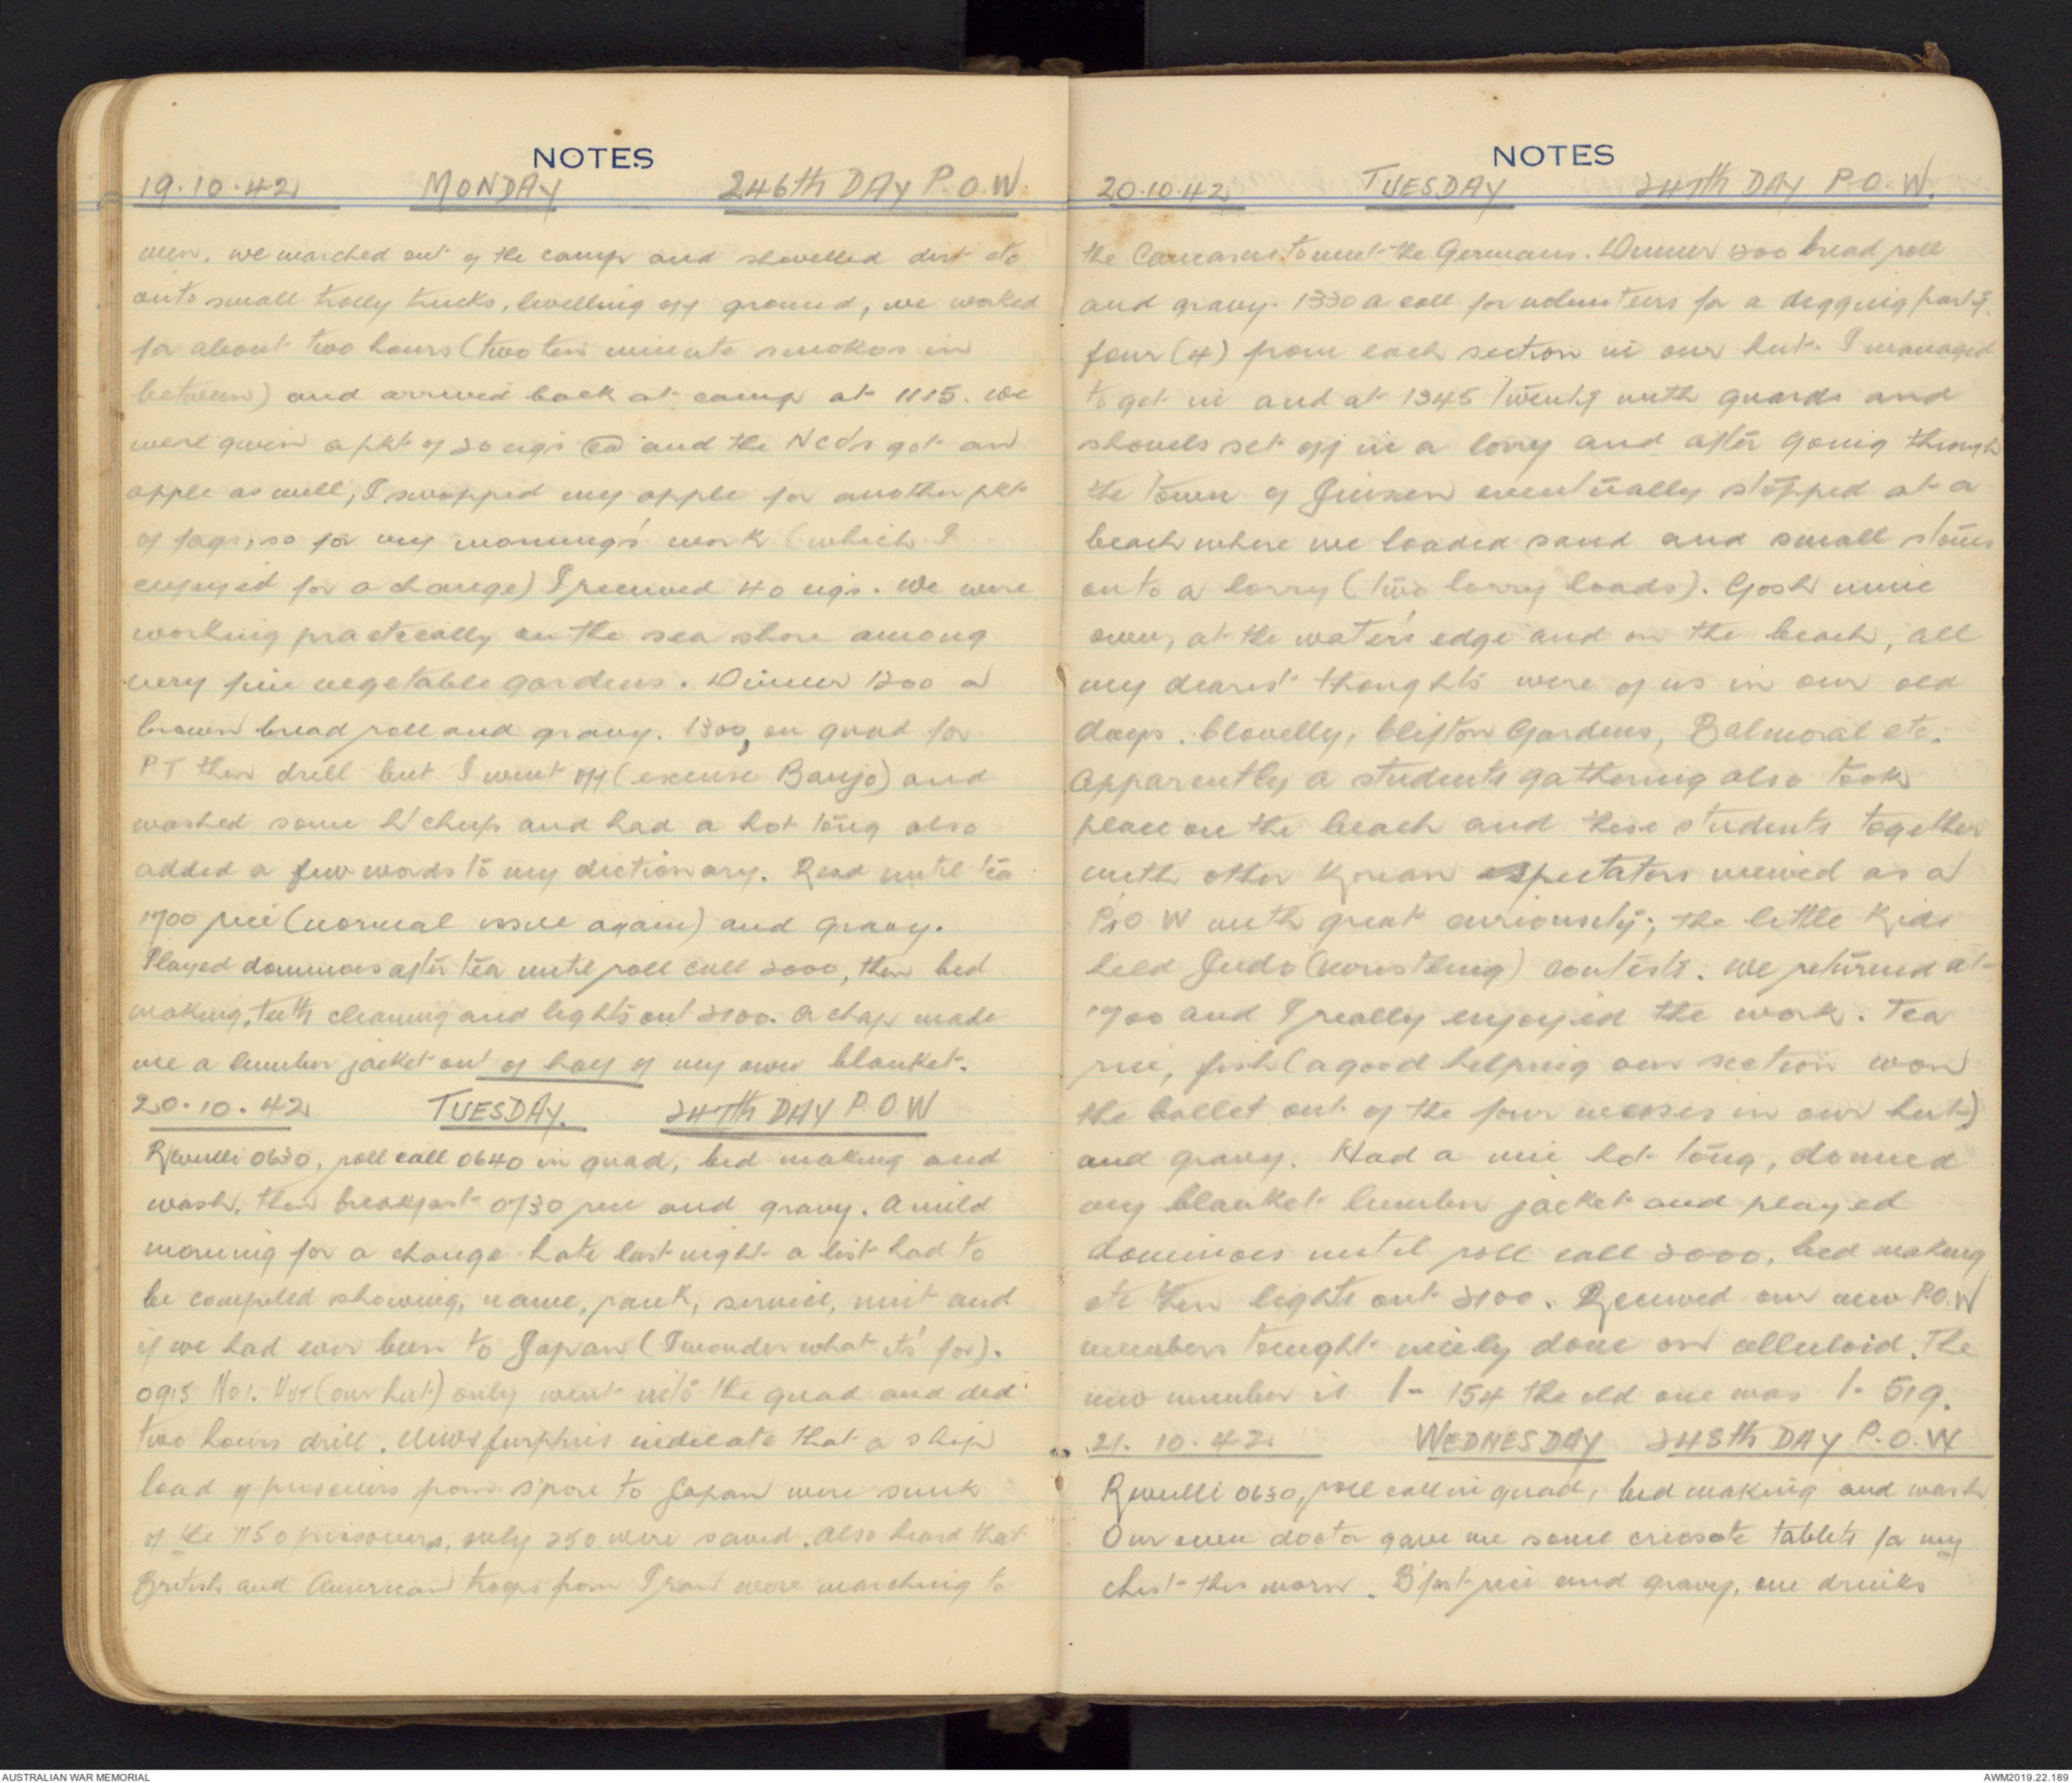 NOTES
19.10.42 MONDAY 246th DAY P.O.W.
men. we marched out of the camp and shovelled dirt etc
onto small trolly trucks, levelling off ground, we worked
for about two hours (two ten minute smokos in
between) and arrived back at camp at 1115. We
were given a pkt of 20 cigs ea and the NCO's got an
apple as well, I swopped my apple for another pkt
of fags, so for my morning's work (which I
enjoyed for a change) I received 40 cigs. We were
working practically on the sea shore among
very fine vegetable gardens. Dinner 1200 a
brown bread roll and gravy. 1300, on quad for
PT then drill but I went off (excuse Banjo) and
washed some h'chufs and had a hot tong also
added a few words to my dictionary. Read until tea
1700 rice (normal issue again) and gravy.
Played dominoes after tea until roll call 2000, then bed
making, teeth cleaning and lights out 2100. A chap made
me a lumber jacket out of half of my own blanket.
20.10.42 TUESDAY. 247th DAY P.O.W
Revelli 0630, roll call 0640 in quad, bed making and
wash, then breakfast 0730 rice and gravy. A mild
morning for a change. Late last night a list had to
be compiled showing, name, rank, service, unit and
if we had ever been to Japan (I wonder what it's for).
0915 No1. HUT (our hut) only went into the quad and did
two hours drill. News furphies indicate that a ship
load of prisoners from S'pore to Japan were sunk
of the 1150 prisoners, only 250 were saved. Also heard that
British and American troops from Iran were marching to
NOTES
20.10.42 TUESDAY 247th DAY P.O.W.
the Caucasus to meet the Germans. Dinner 1200 bread roll
and gravy. 1330 a call for volunteers for a digging party,
four (4) from each section in our hut. I managed
to get in and at 1345 twenty with guards and
shovels set off in a lorry and after going through
the town of Jinsen eventually stopped at a
beach where we loaded sand and small stones
onto a lorry (two lorry loads). Gosh mine
own, at the water's edge and on the beach, all
my dearest thoughts were of us in our old
days. Clovelly, Clifton Gardens, Balmoral etc.
Apparently a students gathering also took
place on the beach and these students together
with other Korean spectators viewed as a
P.O W with great curiousity; the little kids
held Judo (wrestling) contests. We returned at
1700 and I really enjoyed the work. Tea
rice, fish (a good helping our section won
the ballet out of the four messes in our hut)
and gravy. Had a nice hot tong, donned
my blanket lumber jacket and played
dominoes until roll call 2000, bed making
etc then lights out 2100. Received our new P.O.W
numbers tonight nicely done on celluloid. The
new number is 1 - 154 the old one was 1 - 519.
21.10.42 WEDNESDAY 248th DAY P.O.W
Revelli 0630, roll call in quad, bed making and wash.
Our own doctor gave me some creosote tablets for my
chest this morn. B'fast rice and gravy, one drinks
AUSTRALIAN WAR MEMORIAL
AWM2019.22.189